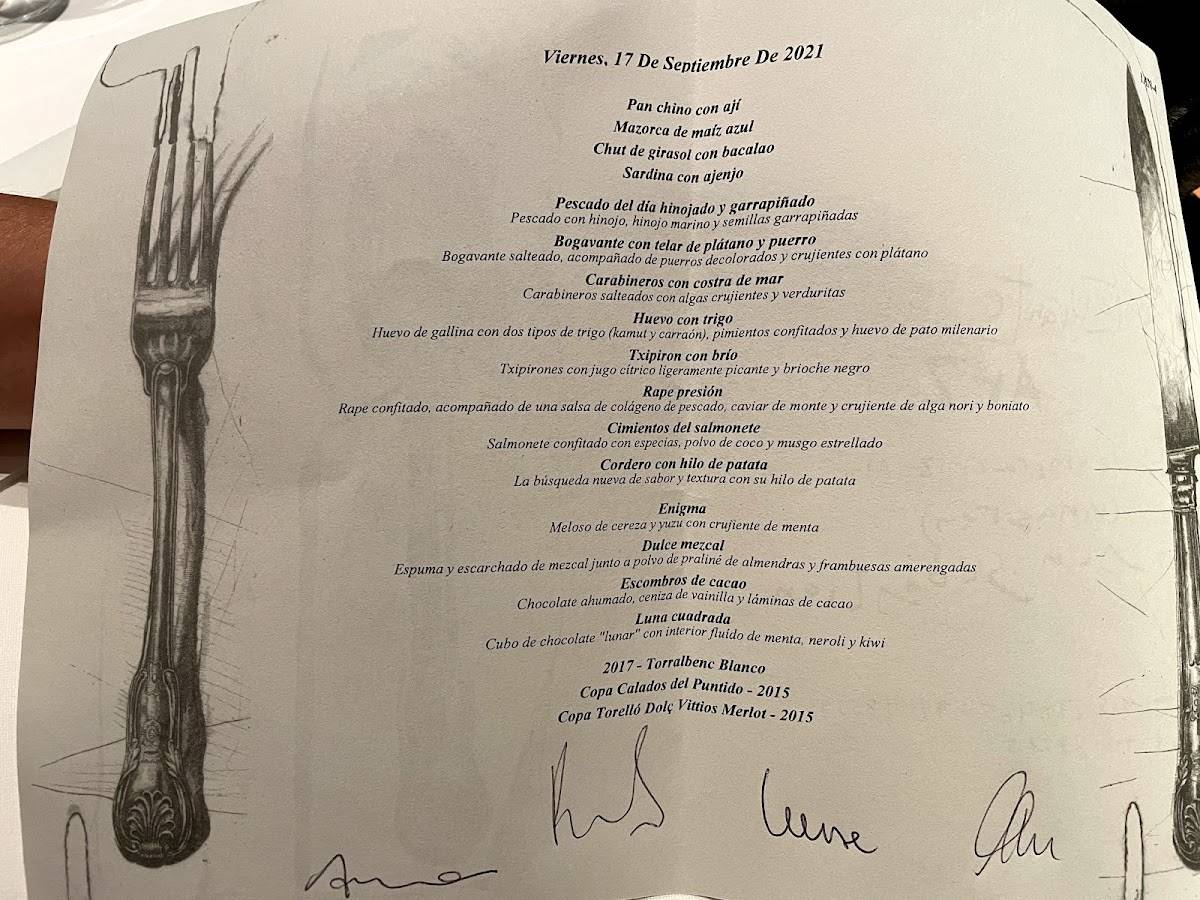 Viernes, 17 De Septiembre De 2021
Pan chino con ají
Mazorca de maíz azul
Chut de girasol con bacalao
Sardina con ajenjo
Pescado del día hinojado y garrapiñado
Pescado con hinojo, hinojo marino y semillas garrapiñadas
Bogavante con telar de plátano y puerro
Bogavante salteado, acompañado de puerros decolorados y crujientes con plátano
Carabineros con costra de mar
Carabineros salteados con algas crujientes y verduritas
Huevo con trigo
Huevo de gallina con dos tipos de trigo (kamut y carraón), pimientos confitados y huevo de pato milenario
Txipiron con brío
Txipirones con jugo cítrico ligeramente picante y brioche negro
Rape presión
Rape confitado, acompañado de una salsa de colágeno de pescado, caviar de monte y crujiente de alga nori y boniato
Cimientos del salmonete
Salmonete confitado con especias, polvo de coco y musgo estrellado
Cordero con hilo de patata
La búsqueda nueva de sabor y textura con su hilo de patata
Enigma
Meloso de cereza y yuzu con crujiente de menta
Dulce mezcal
Espuma y escarchado de mezcal junto a polvo de praliné de almendras y frambuesas amerengadas
Escombros de cacao
Chocolate ahumado, ceniza de vainilla y láminas de cacao
Luna cuadrada
Cubo de chocolate "lunar" con interior fluído de menta, neroli y kiwi
2017 - Torralbenc Blanco
Copa Calados del Puntido - 2015
Copa Torelló Dolç Vittios Merlot - 2015